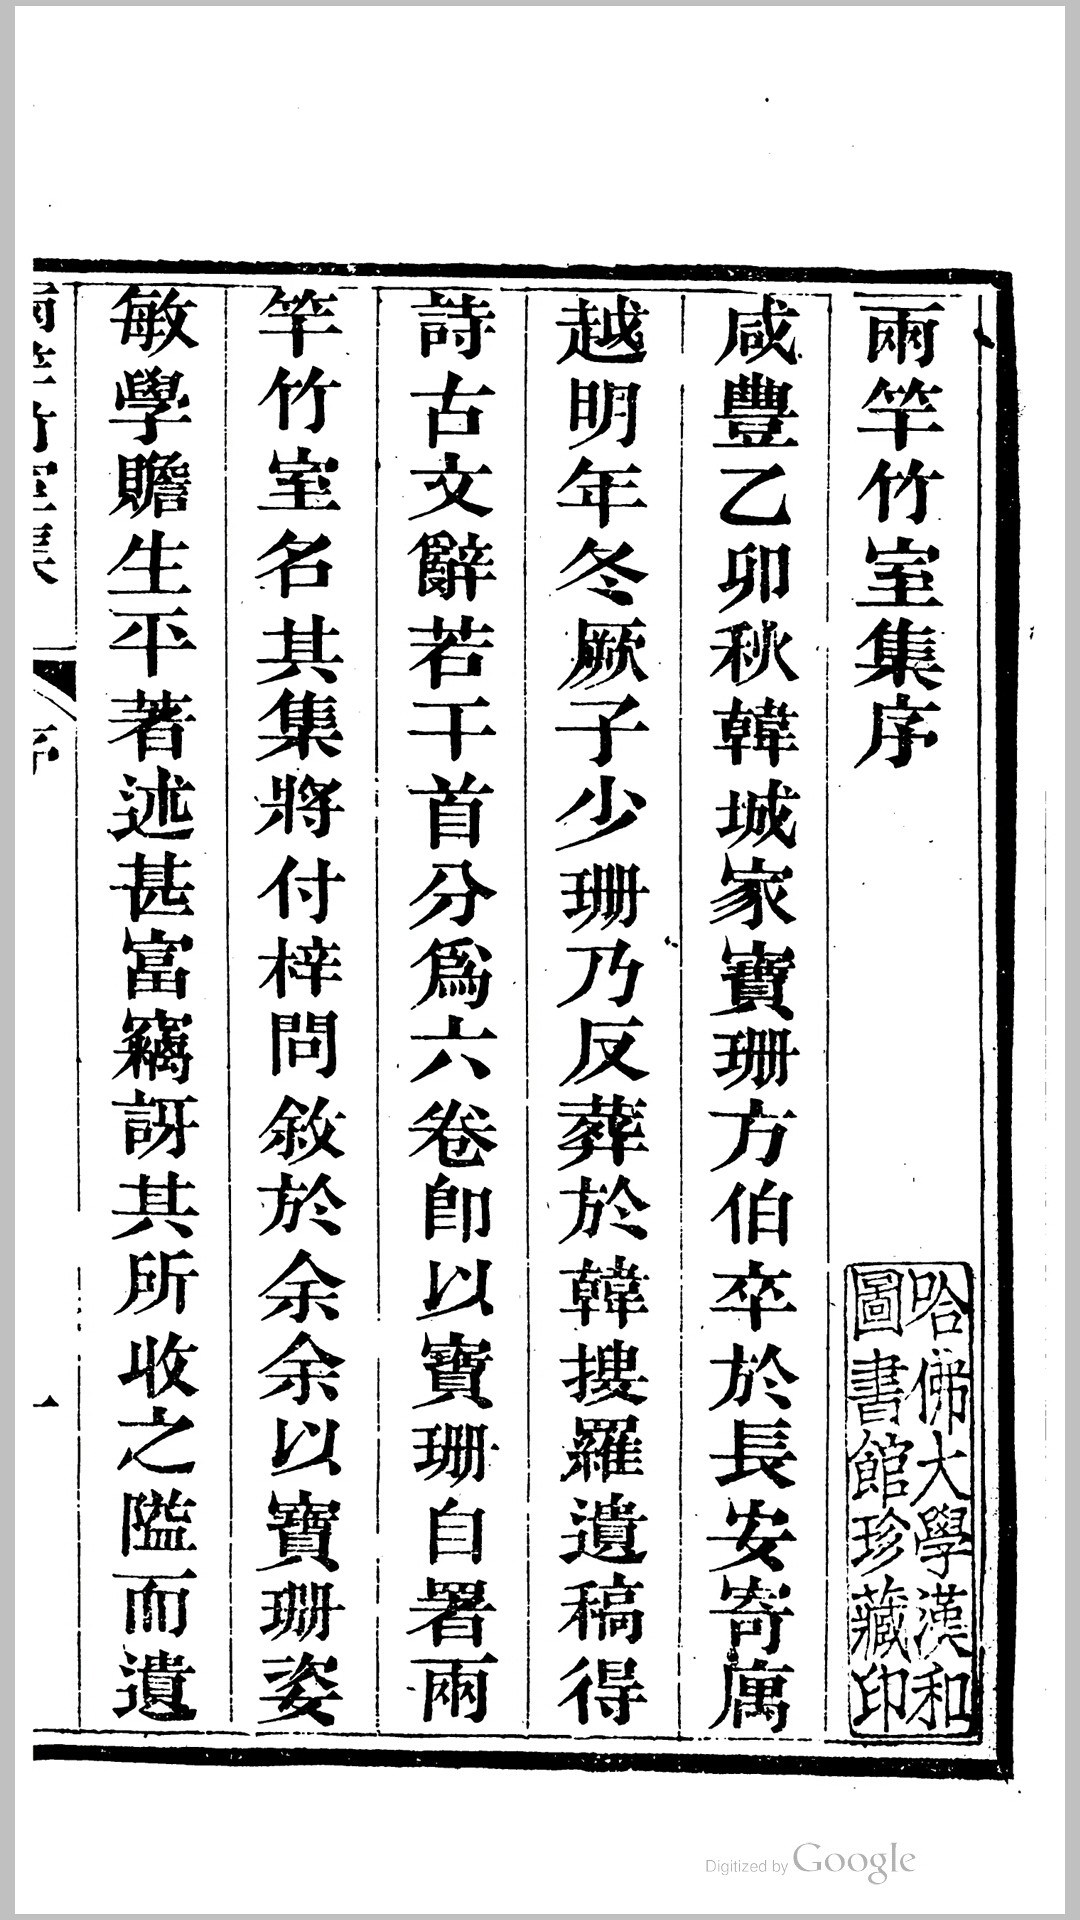 兩竿竹室集序
哈佛大學漢和
圖書館珍藏印
咸豐乙卯秋韓城家寶珊方伯卒於長安寄廡
越明年冬厥子少珊乃反葬於韓搜羅遺稿得
詩古文辭若干首分爲六卷卽以寶珊自署兩
竿竹室名其集將付梓問敘於余余以寶珊姿
敏學贍生平著述甚富竊訝其所收之隘而遺
兩竿竹室集
序
一
Digitized by Google